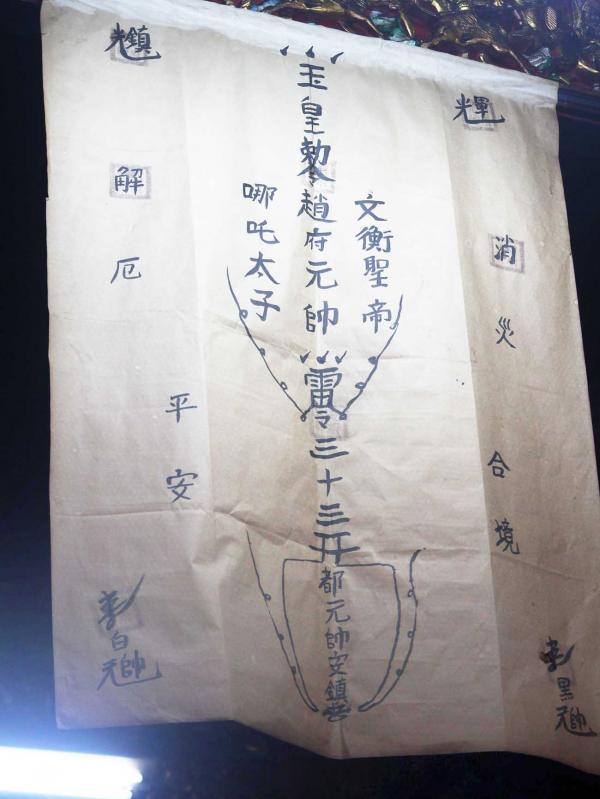 玉皇勅令趙府元帥
文衡聖帝
哪吒太子
雷令三十三天
都元帥安鎮營
消災合境
解厄平安
李黑元帥
李白元帥